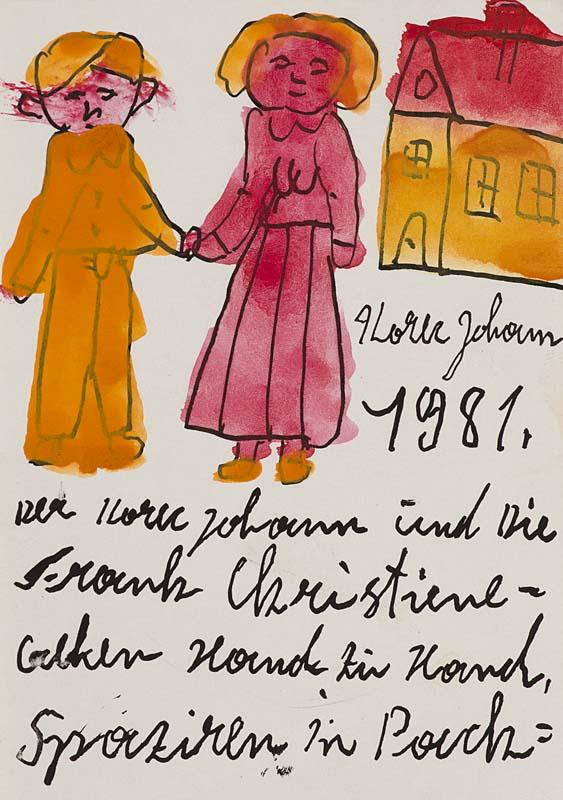 Korec Johann
1981.
Der Korec Johann und Die
Frank Christiene=
Gehen Hand zu Hand,
Spaziren in Park=